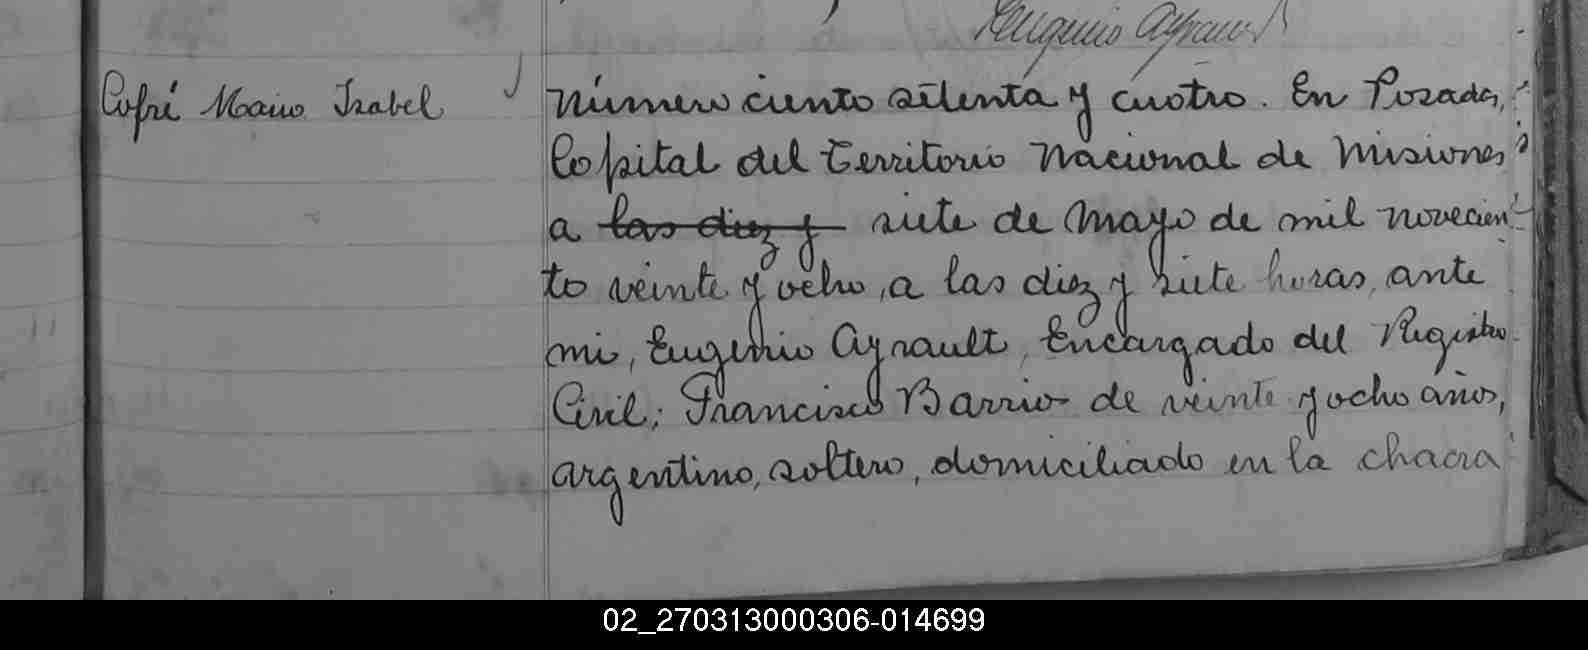 Eugenio Ayrault
Cofré Maria Isabel
Número ciento setenta y cuatro. En Posadas,
Capital del Territorio Nacional de Misiones
a las diez y siete de Mayo de mil novecien-
to veinte y ocho, a las diez y siete horas, ante
mi, Eugenio Ayrault, Encargado del Registro
Civil; Francisco Barrios de veinte y ocho años,
argentino, soltero, domiciliado en la chacra
02_270313000306-014699